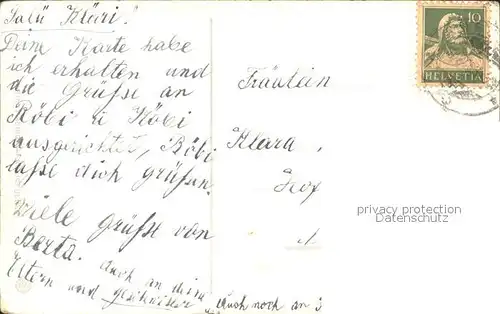 Salü Kläri!
Deine Karte habe
ich erhalten und
die Grüsse an
Röbi u Köbi
ausgerichtet, Röbi
lasse dich grüssen.
Viele Grüsse von
Berta. auch an deine
Eltern und geschwister auch noch an
10
HELVETIA
Fräulein
Klara
privacy protection
Datenschutz